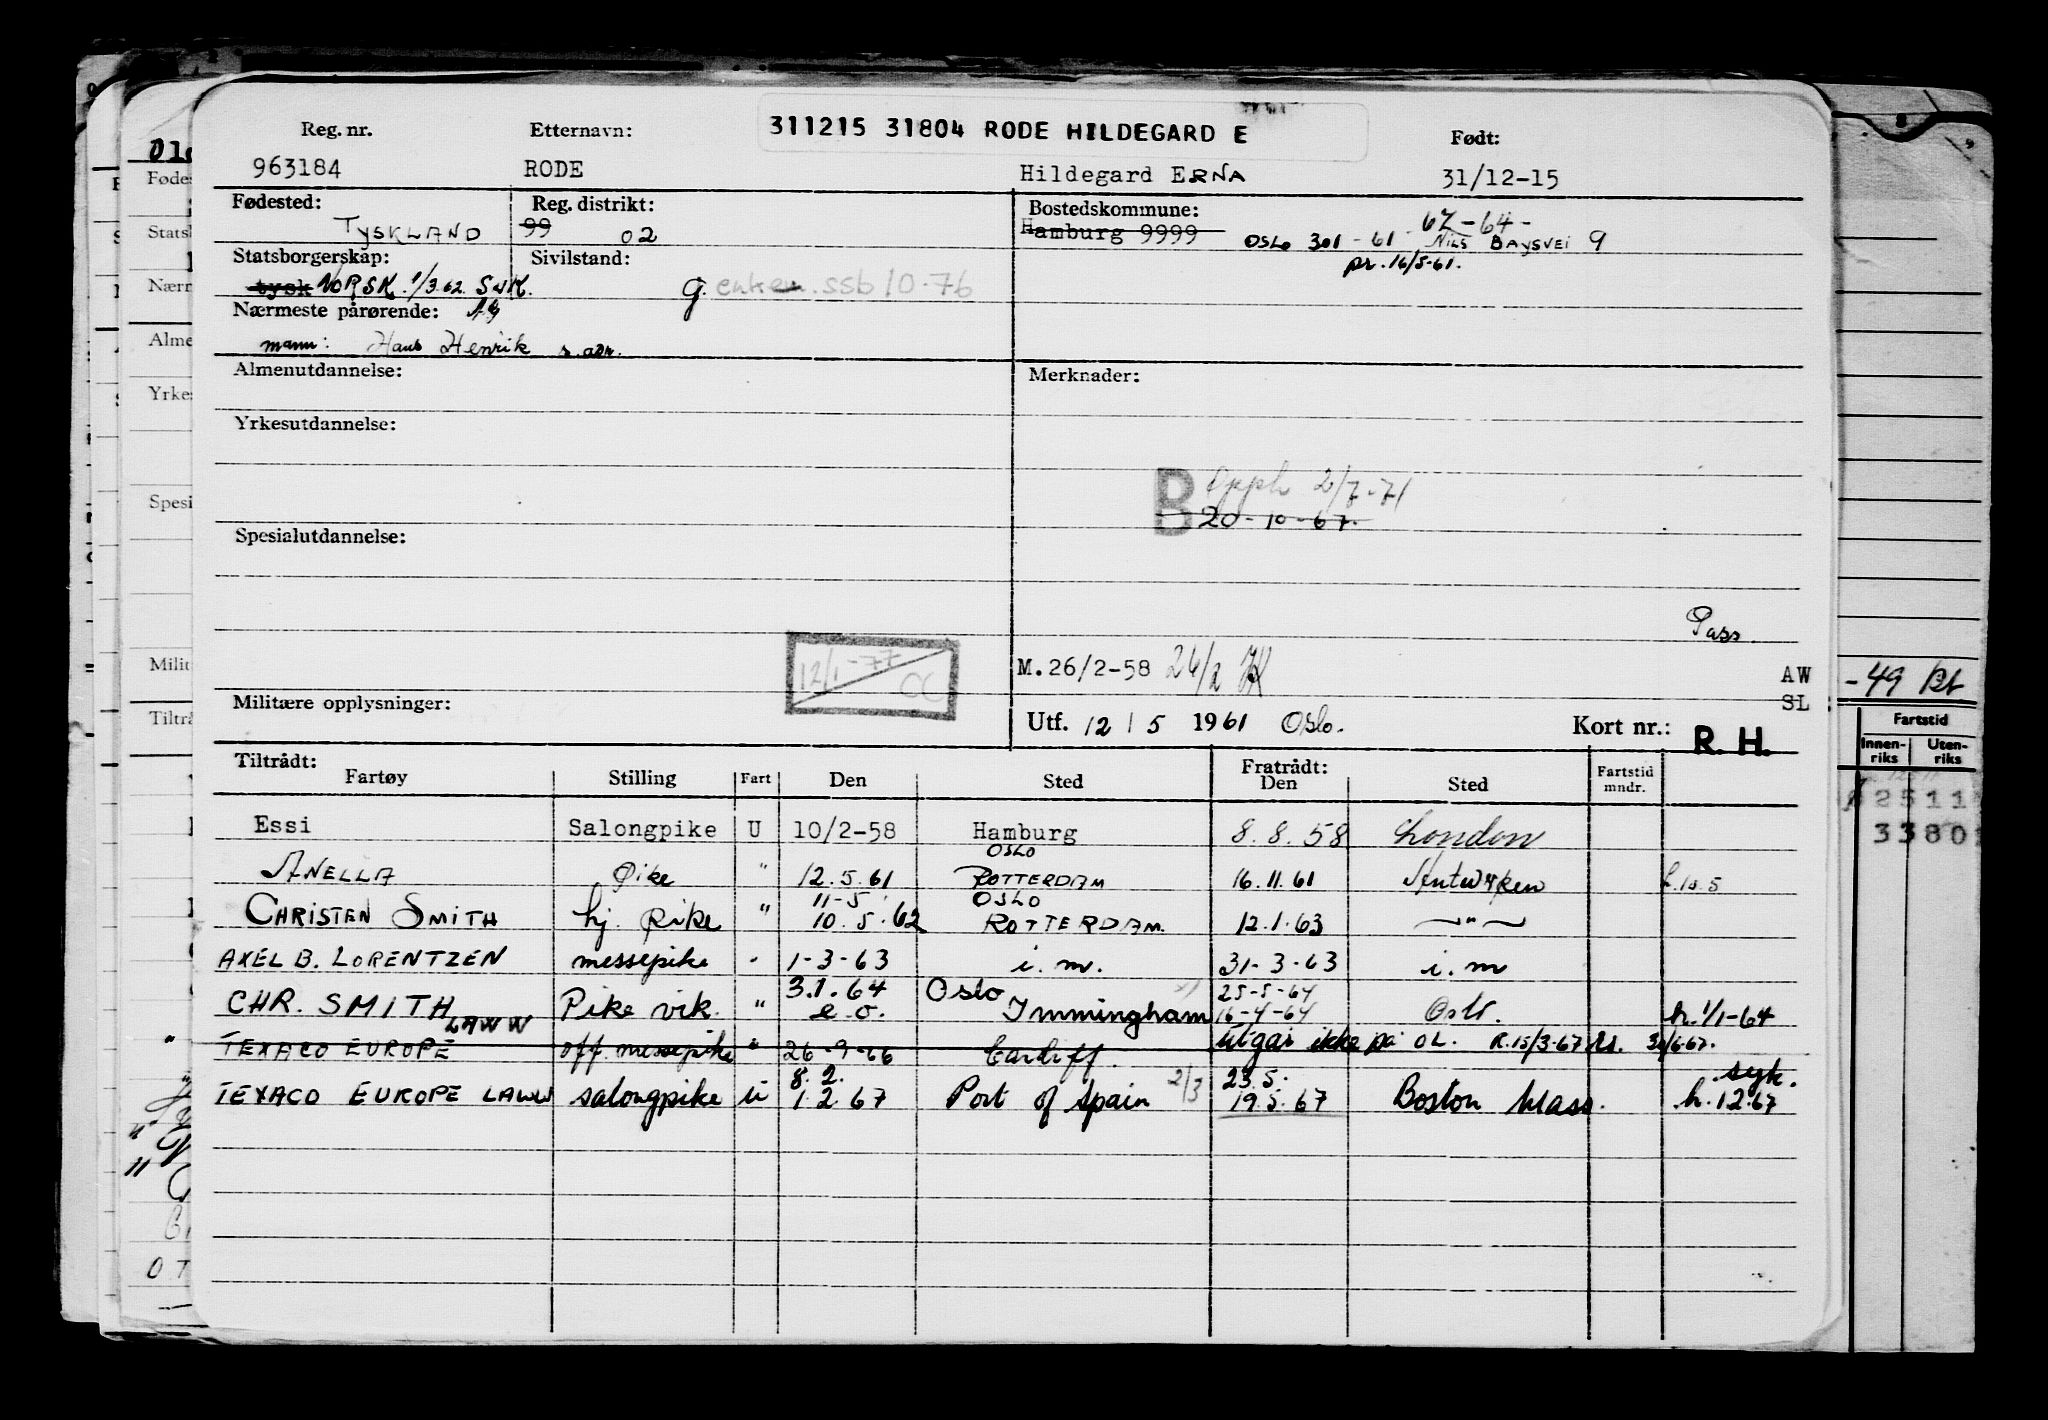 311215 31804 RODE HILDEGARD E
Reg. nr. Etternavn: Født:
963184 RODE Hildegard ERNA 31/12-15
Fødested: Reg. distrikt: Bostedskommune:
TYSKLAND 99 02 Hamburg 9999 OSLO 301 - 61 - 62 - 64 - NILS BAYSVEI 9
pr. 16/5-61.
Statsborgerskap: Sivilstand:
tysk NORSK. 1/3.62. g. enke ssb 10-76
Nærmeste pårørende:
mann: Hans Henrik s. adr.
Almenutdannelse: Merknader:
Yrkesutdannelse:
B Opph 2/7-71
20-10-67.
Spesialutdannelse:
Pass.
12/1-77
M. 26/2-58 26/2
AW
SL
Militære opplysninger:
Utf. 12 / 5 1961 Oslo. Kort nr.: R. H.
Tiltrådt: Fratrådt:
Fartøy Stilling Fart Den Sted Den Sted Fartstid mndr.
Essi Salongpike U 10/2-58 Hamburg 8.8.58 London
OSLO
ANELLA pike " 12.5.61 ROTTERDAM 16.11.61 Antwerpen
11-5 OSLO
CHRISTEN SMITH hj. pike " 10.5.62 ROTTERDAM. 12.1.63 — " —
AXEL B. LORENTZEN messepike " 1-3-63 i. m. 31-3-63 i. m
3.1.64 Oslo 25-5-64
CHR. SMITH Pike vik. " e.o. Immingham 16-4-64 Oslo. h. 1/1-64
LAWW
" TEXACO EUROPE off. messepike " 26-9-66 Cardiff. utgår ikke på OL. R. 15/3-67
8.2. 23.5. syk.
TEXACO EUROPE LAWW salongpike U 1.2.67 Port of Spain 2/3 19.5.67 Boston Mass. h. 1.2.67
-49
Fartstid
Innenriks Utenriks
2511
3380